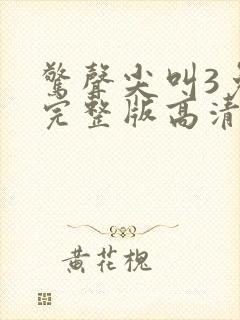 驚聲尖叫3
完整版高清
黄花槐